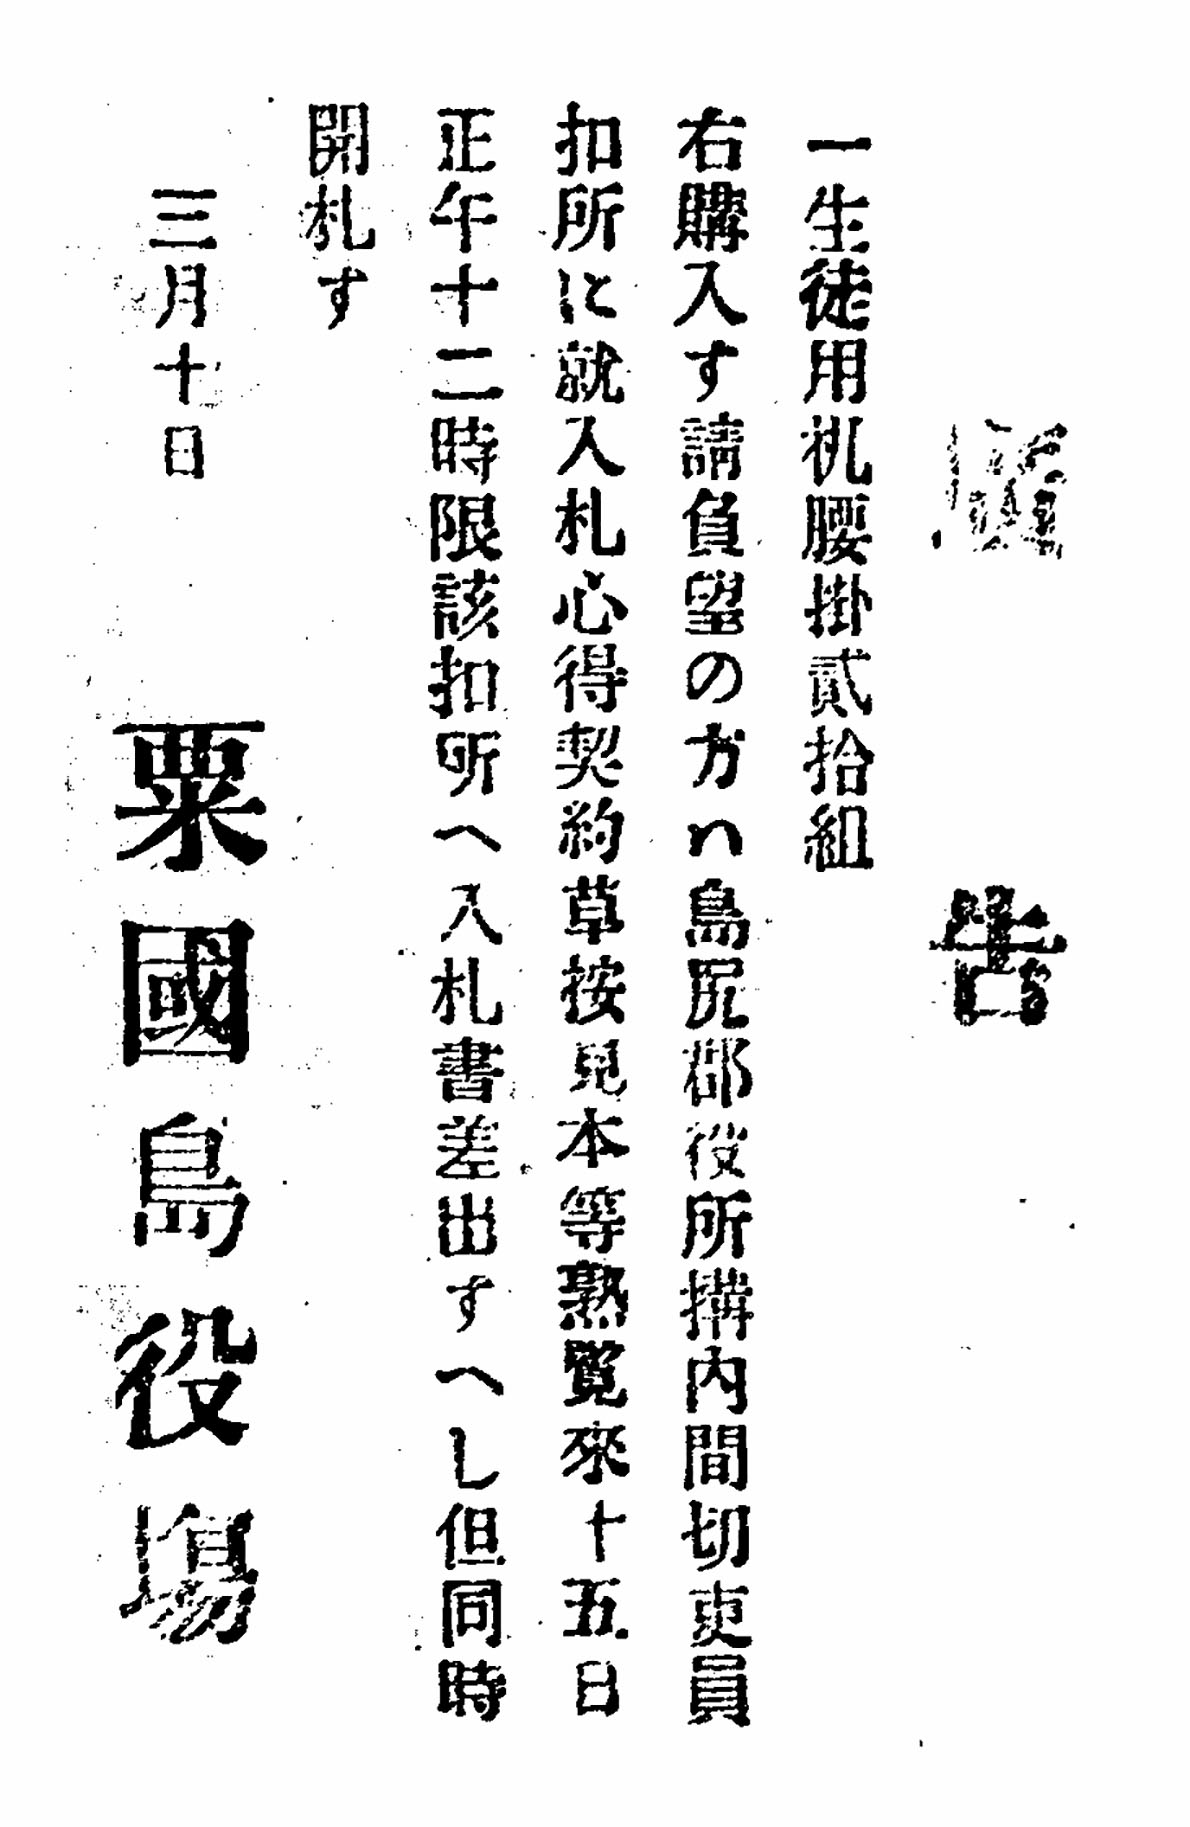 廣告
一生徒用机腰掛貳拾組
右購入す請負望の方ハ島尻郡役所搆内間切吏員
扣所に就入札心得契約草按見本等熟覽來十五日
正午十二時限該扣所へ入札書差出すへし但同時
開札す
三月十日 粟國島役塲